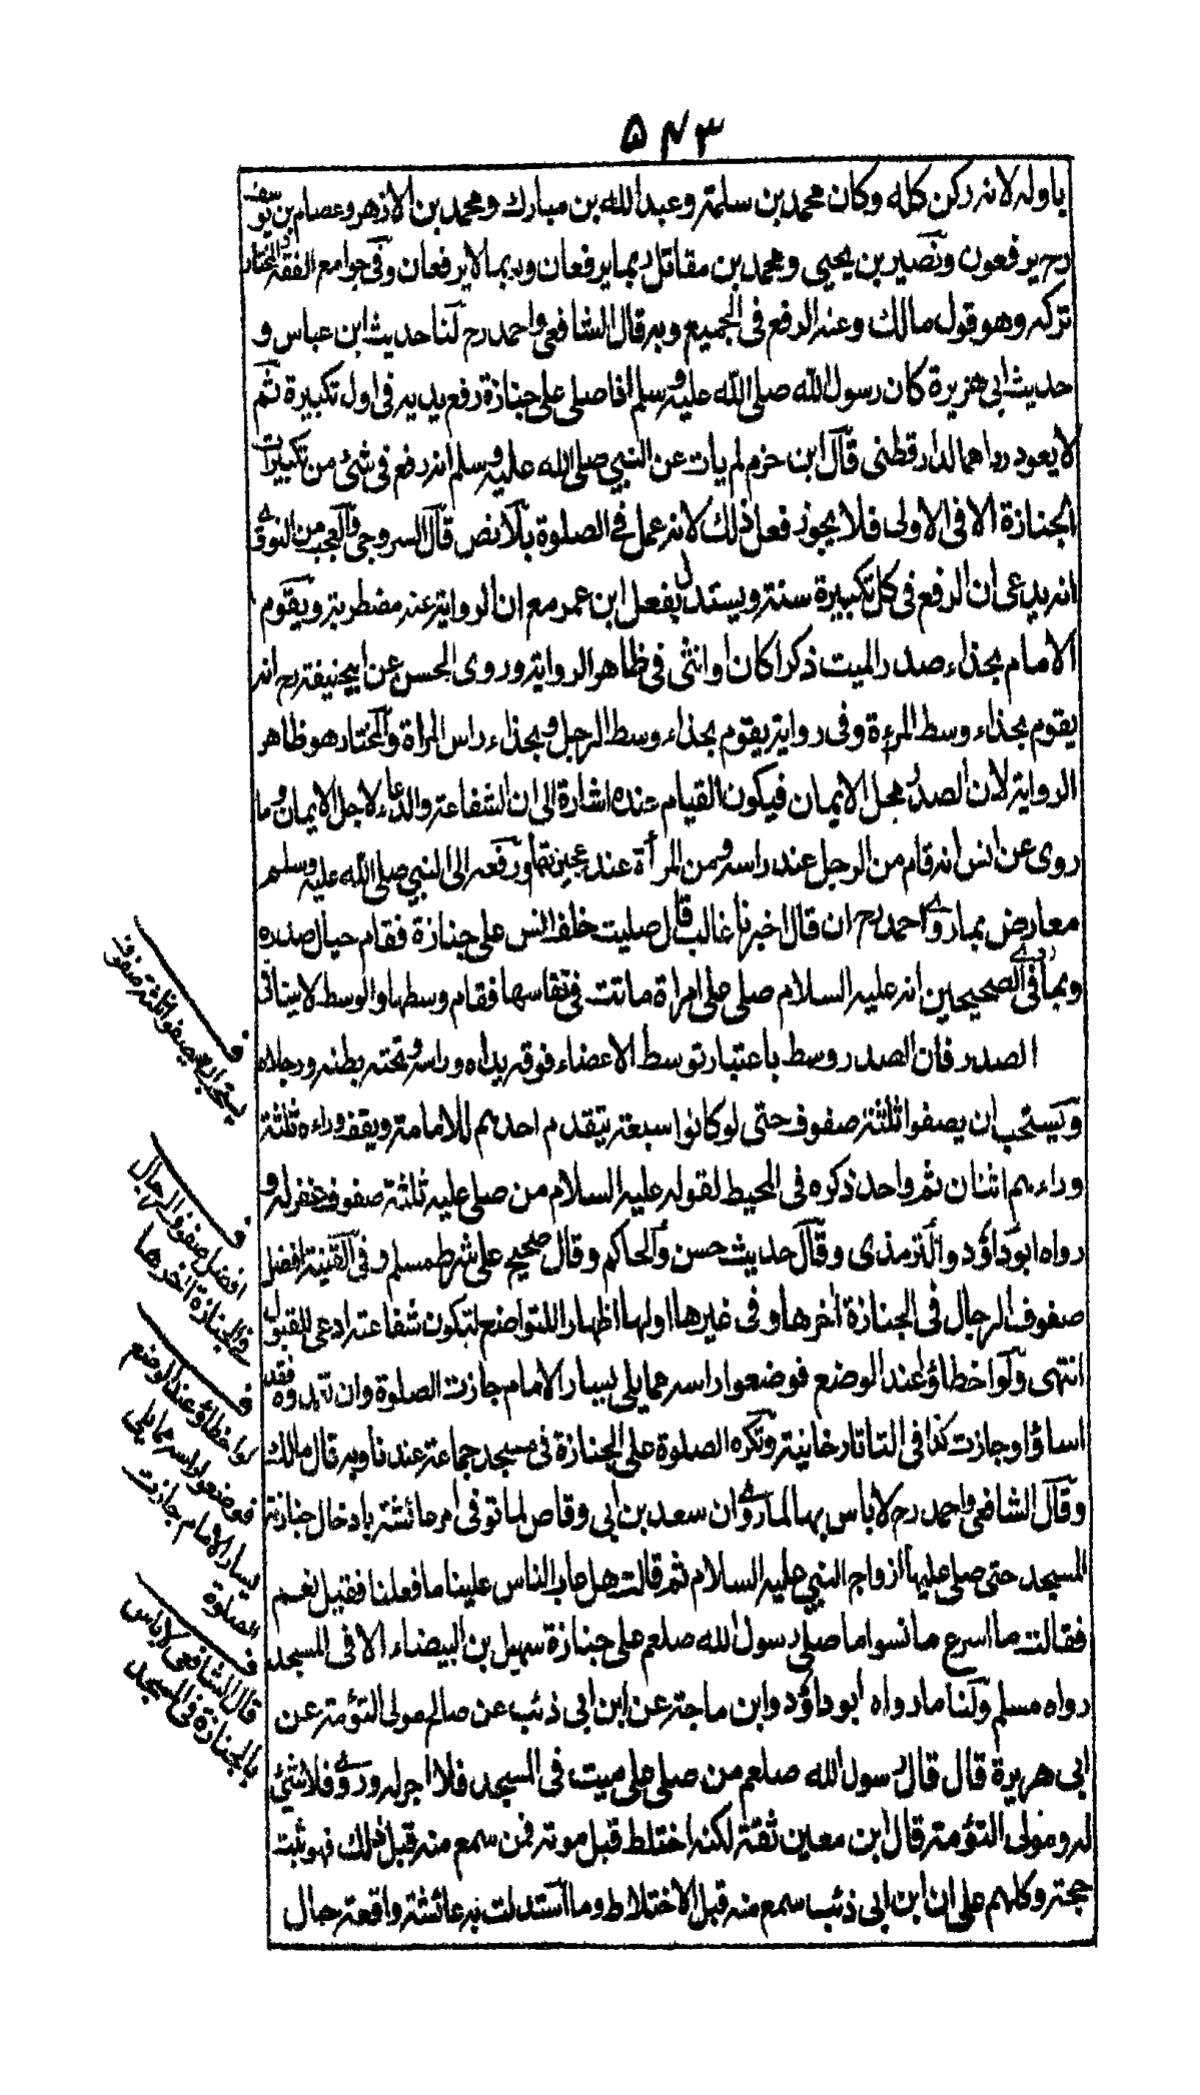 ۵۴۳
باوله لانه ركن كله وكان محمد بن سلمة وعبد الله بن مبارك ومحمد بن الازهر وعصام بن يوسف
رح يرفعون ونصير بن يحيى ومحمد بن مقاتل ربما يرفعان وربما لا يرفعان وفى جوامع الفقه المختار
تركه وهو قول مالك وعنه الرفع فى الجميع وبه قال الشافعى واحمد رح لنا حديث ابن عباس و
حديث ابى هريرة كان رسول الله صلى الله عليه وسلم اذا صلى على جنازة رفع يديه فى اول تكبيرة ثم
لا يعود رواهما الدارقطنى قال ابن حزم لم يات عن النبي صلى الله عليه وسلم انه رفع فى شئ من تكبيرات
الجنازة الا فى الاولى فلا يجوز فعل ذلك لانه عمل فى الصلوة بلا نص قال السروجى والعجب من النووى
انه يدعى ان الرفع فى كل تكبيرة سنة ويستدل بفعل ابن عمر مع ان الرواية عنه مضطربة ويقوم
الامام بحذاء صدر الميت ذكرا كان او انثى فى ظاهر الرواية وروى الحسن عن ابيحنيفة رح انه
يقوم بحذاء وسط المرءة وفى رواية يقوم بحذاء وسط الرجل وبحذاء راس المراة والمختار هو ظاهر
الرواية لان الصدر محل الايمان فيكون القيام عنده اشارة الى ان الشفاعة والدعاء لاجل الايمان وما
روى عن انس انه قام من الرجل عند راسه ومن المرأة عند عجيزتها ورفعه الى النبي صلى الله عليه وسلم
معارض بما روى احمد رح ان قال اخبرنا غالب قال صليت خلف انس على جنازة فقام حيال صدره
وبما روى فى الصحيحين انه عليه السلام صلى على امراة ماتت فى نفاسها فقام وسطها والوسط لا ينافى
الصدر فان الصدر وسط باعتبار توسط الاعضاء فوقه يداه وراسه وتحته بطنه ورجلاه
ويستحب ان يصفوا ثلثة صفوف حتى لو كانوا سبعة يتقدم احدهم للامامة ويقف وراءه ثلثة
وراءهم اثنان ثم واحد ذكره فى المحيط لقوله عليه السلام من صلى عليه ثلثة صفوف غفر له و
رواه ابو داؤد والترمذى وقال حديث حسن والحاكم وقال صحيح على شرط مسلم وفى القنية افضل
صفوف الرجال فى الجنازة أخرها وفى غيرها اولها اظهارا للتواضع لتكون شفاعته ادعى للقبول
انتهى ولو اخطاؤا عند الوضع فوضعوا راسه مما يلى يسار الامام جازت الصلوة وان تعمدوه فقد
اساؤا وجازت كذا فى التاتارخانية وتكره الصلوة على الجنازة فى مسجد جماعة عندنا وبه قال مالك
وقال الشافعى واحمد رح لا باس بها لما روى ان سعد بن ابى وقاص لما توفى امر عائشة بادخال جنازته
المسجد حتى صلى عليها ازواج النبي عليه السلام ثم قالت هل عاب الناس علينا ما فعلنا فقيل نعم
فقالت ما اسرع ما نسوا ما صلى رسول الله صلعم على جنازة سهيل بن البيضاء الا فى المسجد
رواه مسلم ولنا ما رواه ابو داؤد وابن ماجة عن ابن ابى ذئب عن صالح مولى التؤمة عن
ابى هريرة قال قال رسول الله صلعم من صلى على ميت فى المسجد فلا اجر له وروى فلا شئ
له ومولى التؤمة قال ابن معين ثقة لكنه اختلط قبل موته فمن سمع منه قبل ذلك فهو ثبت
حجة وكلهم على ان ابن ابى ذئب سمع منه قبل الاختلاط وما استدلت به عائشة واقعة حال
ف
يستحب ان يصفوا ثلثة صفوف
ف
افضل صفوف الرجال
فى الجنازة أخرها
ف
لو اخطاؤ عند الوضع
فوضعوا راسه مما يلى
يسار الامام جازت
الصلوة
ف
قال الشافعى لا باس
بالجنازة فى المسجد